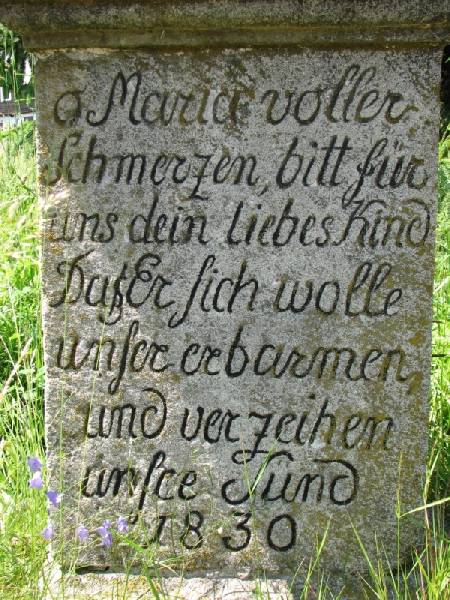 o Maria voller
Schmerzen, bitt für
uns dein liebes Kind
Daß Er ſich wolle
unſer erbarmen,
und verzeihen
unſre Sünd
1830